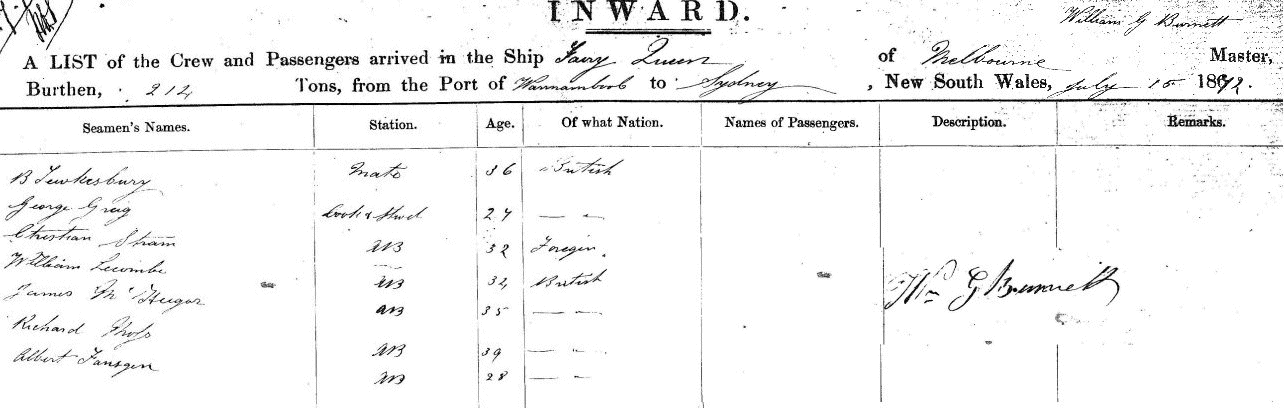 INWARD.
William G Burnett
A LIST of the Crew and Passengers arrived in the Ship Fairy Queen of Melbourne Master,
Burthen, 214 Tons, from the Port of Warrnambool to Sydney, New South Wales, July 15 1872.
Seamen's Names. Station. Age. Of what Nation. Names of Passengers. Description. Remarks.
B Tewkesbury Mate 36 British
George Greig Cook & Stwd 27 — "
Christian Stram AB 32 Foregin
William Lecombe AB 32 British
James Mc AB 35 — "
Richard AB 39 — "
Albert Fansgen AB 28 — "
Wm G Burnett